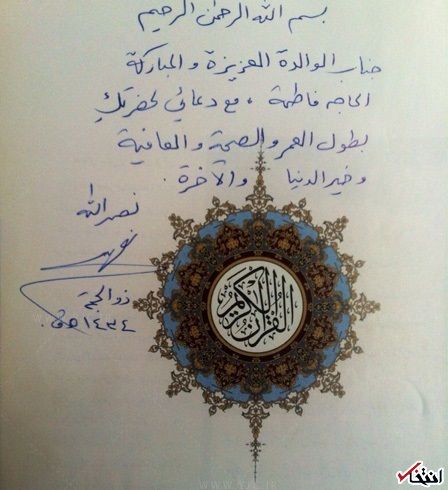 بسم الله الرحمن الرحيم
جناب الوالدة العزيزة والمباركة
الحاجه فاطمة ، مع دعائي لحضرتكِ
بطول العمر والصحة والعافية
وخير الدنيا والآخرة .
نصر الله
ذو الحجة
١٤٣٤ هـ ق.
القرآن الكريم
انتخاب
WWW.YJC.IR